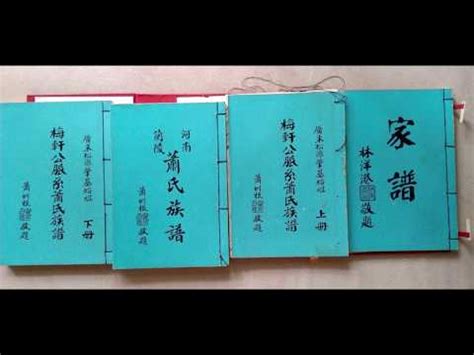 廣東松源肇基始祖
梅軒公脈系蕭氏族譜
下冊
敬題
河南
蘭陵
蕭氏族譜
敬題
廣東松源肇基始祖
梅軒公脈系蕭氏族譜
上冊
敬題
家譜
林洋港
敬題